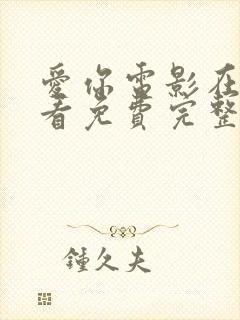 愛你雷影在
看免費完整
鍾久夫